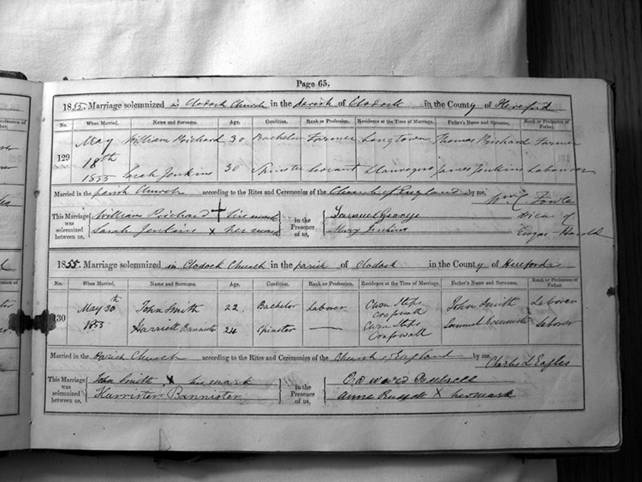 Page 65.
1855. Marriage solemnized in Clodock Church in the parish of Clodock in the County of Hereford
No. When Married. Name and Surname. Age. Condition. Rank or Profession. Residence at the Time of Marriage. Father's Name and Surname. Rank or Profession of Father.
129 May 18th 1855 William Prichard 30 Bachelor Farmer Longtown Thomas Prichard Farmer
Sarah Jenkins 30 Spinster Servant James Jenkins Labourer
Married in the parish Church according to the Rites and Ceremonies of the Church of England by me,
This Marriage was solemnized between us, William Prichard + his mark in the Presence of us, Samuel George
Sarah Jenkins x her mark Mary Jenkins
Vicar of
Ewyas Harold
1855. Marriage solemnized in Clodock Church in the parish of Clodock in the County of Hereford
No. When Married. Name and Surname. Age. Condition. Rank or Profession. Residence at the Time of Marriage. Father's Name and Surname. Rank or Profession of Father.
30 May 30th 1855 John Smith 22 Bachelor Labourer John Smith Labourer
Harriett Bannister 24 Spinster — Samuel Bannister Labourer
Married in the Parish Church according to the Rites and Ceremonies of the Church of England by me Charles L Eagles
This Marriage was solemnized between us, John Smith x his mark in the Presence of us,
Harrister Bannister Anne Russell x her mark